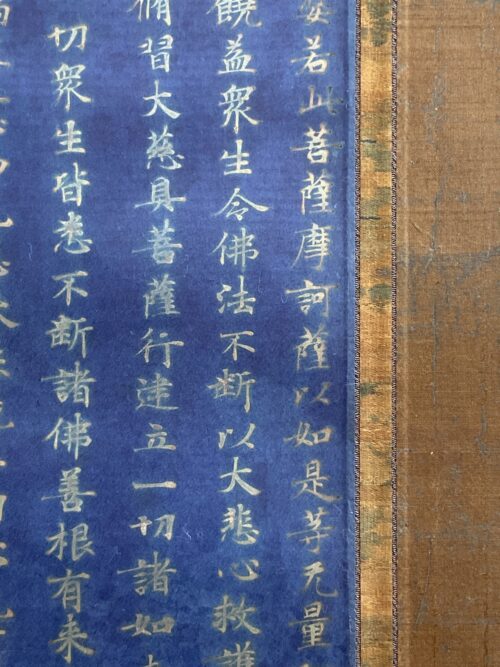 若此菩薩摩訶薩以如是等无量
饒益衆生令佛法不斷以大悲心救護
脩習大慈具菩薩行建立一切諸如
切衆生皆悉不斷諸佛善根有来